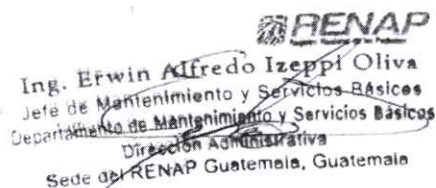 RENAP
Registro Nacional de las Personas
Ing. Erwin Alfredo Izeppi Oliva
Jefe de Mantenimiento y Servicios Básicos
Departamento de Mantenimiento y Servicios Básicos
Dirección Administrativa
Sede del RENAP Guatemala, Guatemala